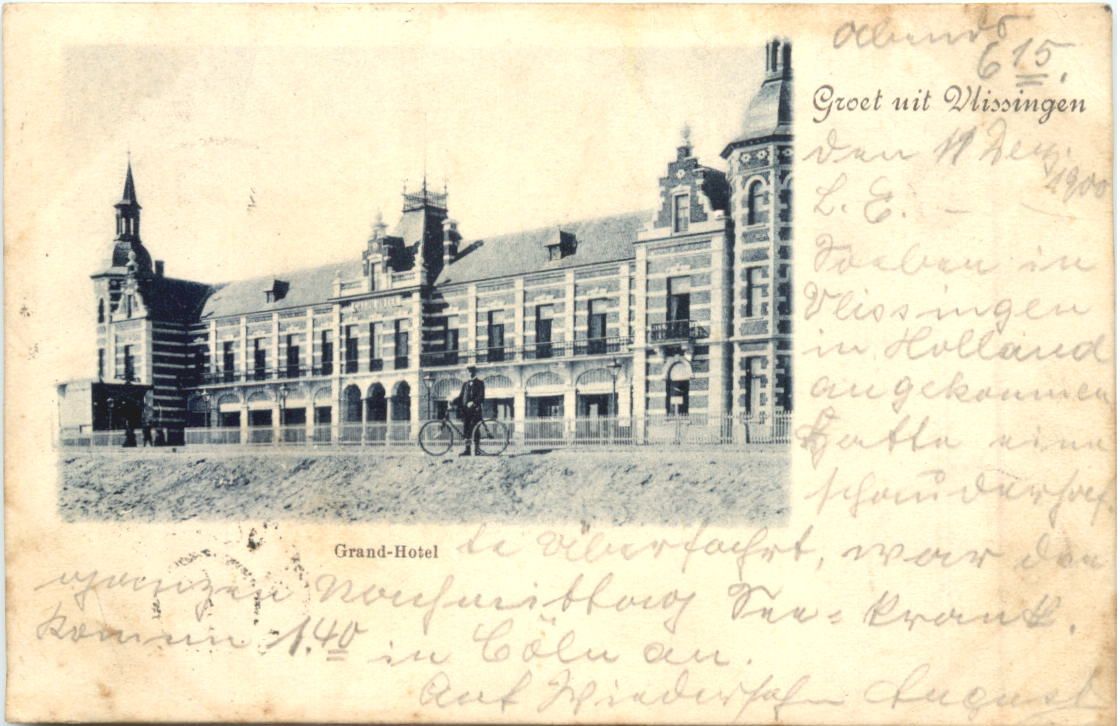 Abends
6 15.
Groet uit Vlissingen
den 11 Dez.
1900
L. E. –
Soeben in
Vlissingen
in Holland
angekommen
Hatte eine
schauderhaf
Grand-Hotel
te Überfachrt, war den
ganzen Nachmittag See-krank.
komm 1.40 in Cöln an.
Auf Wiedersehn August